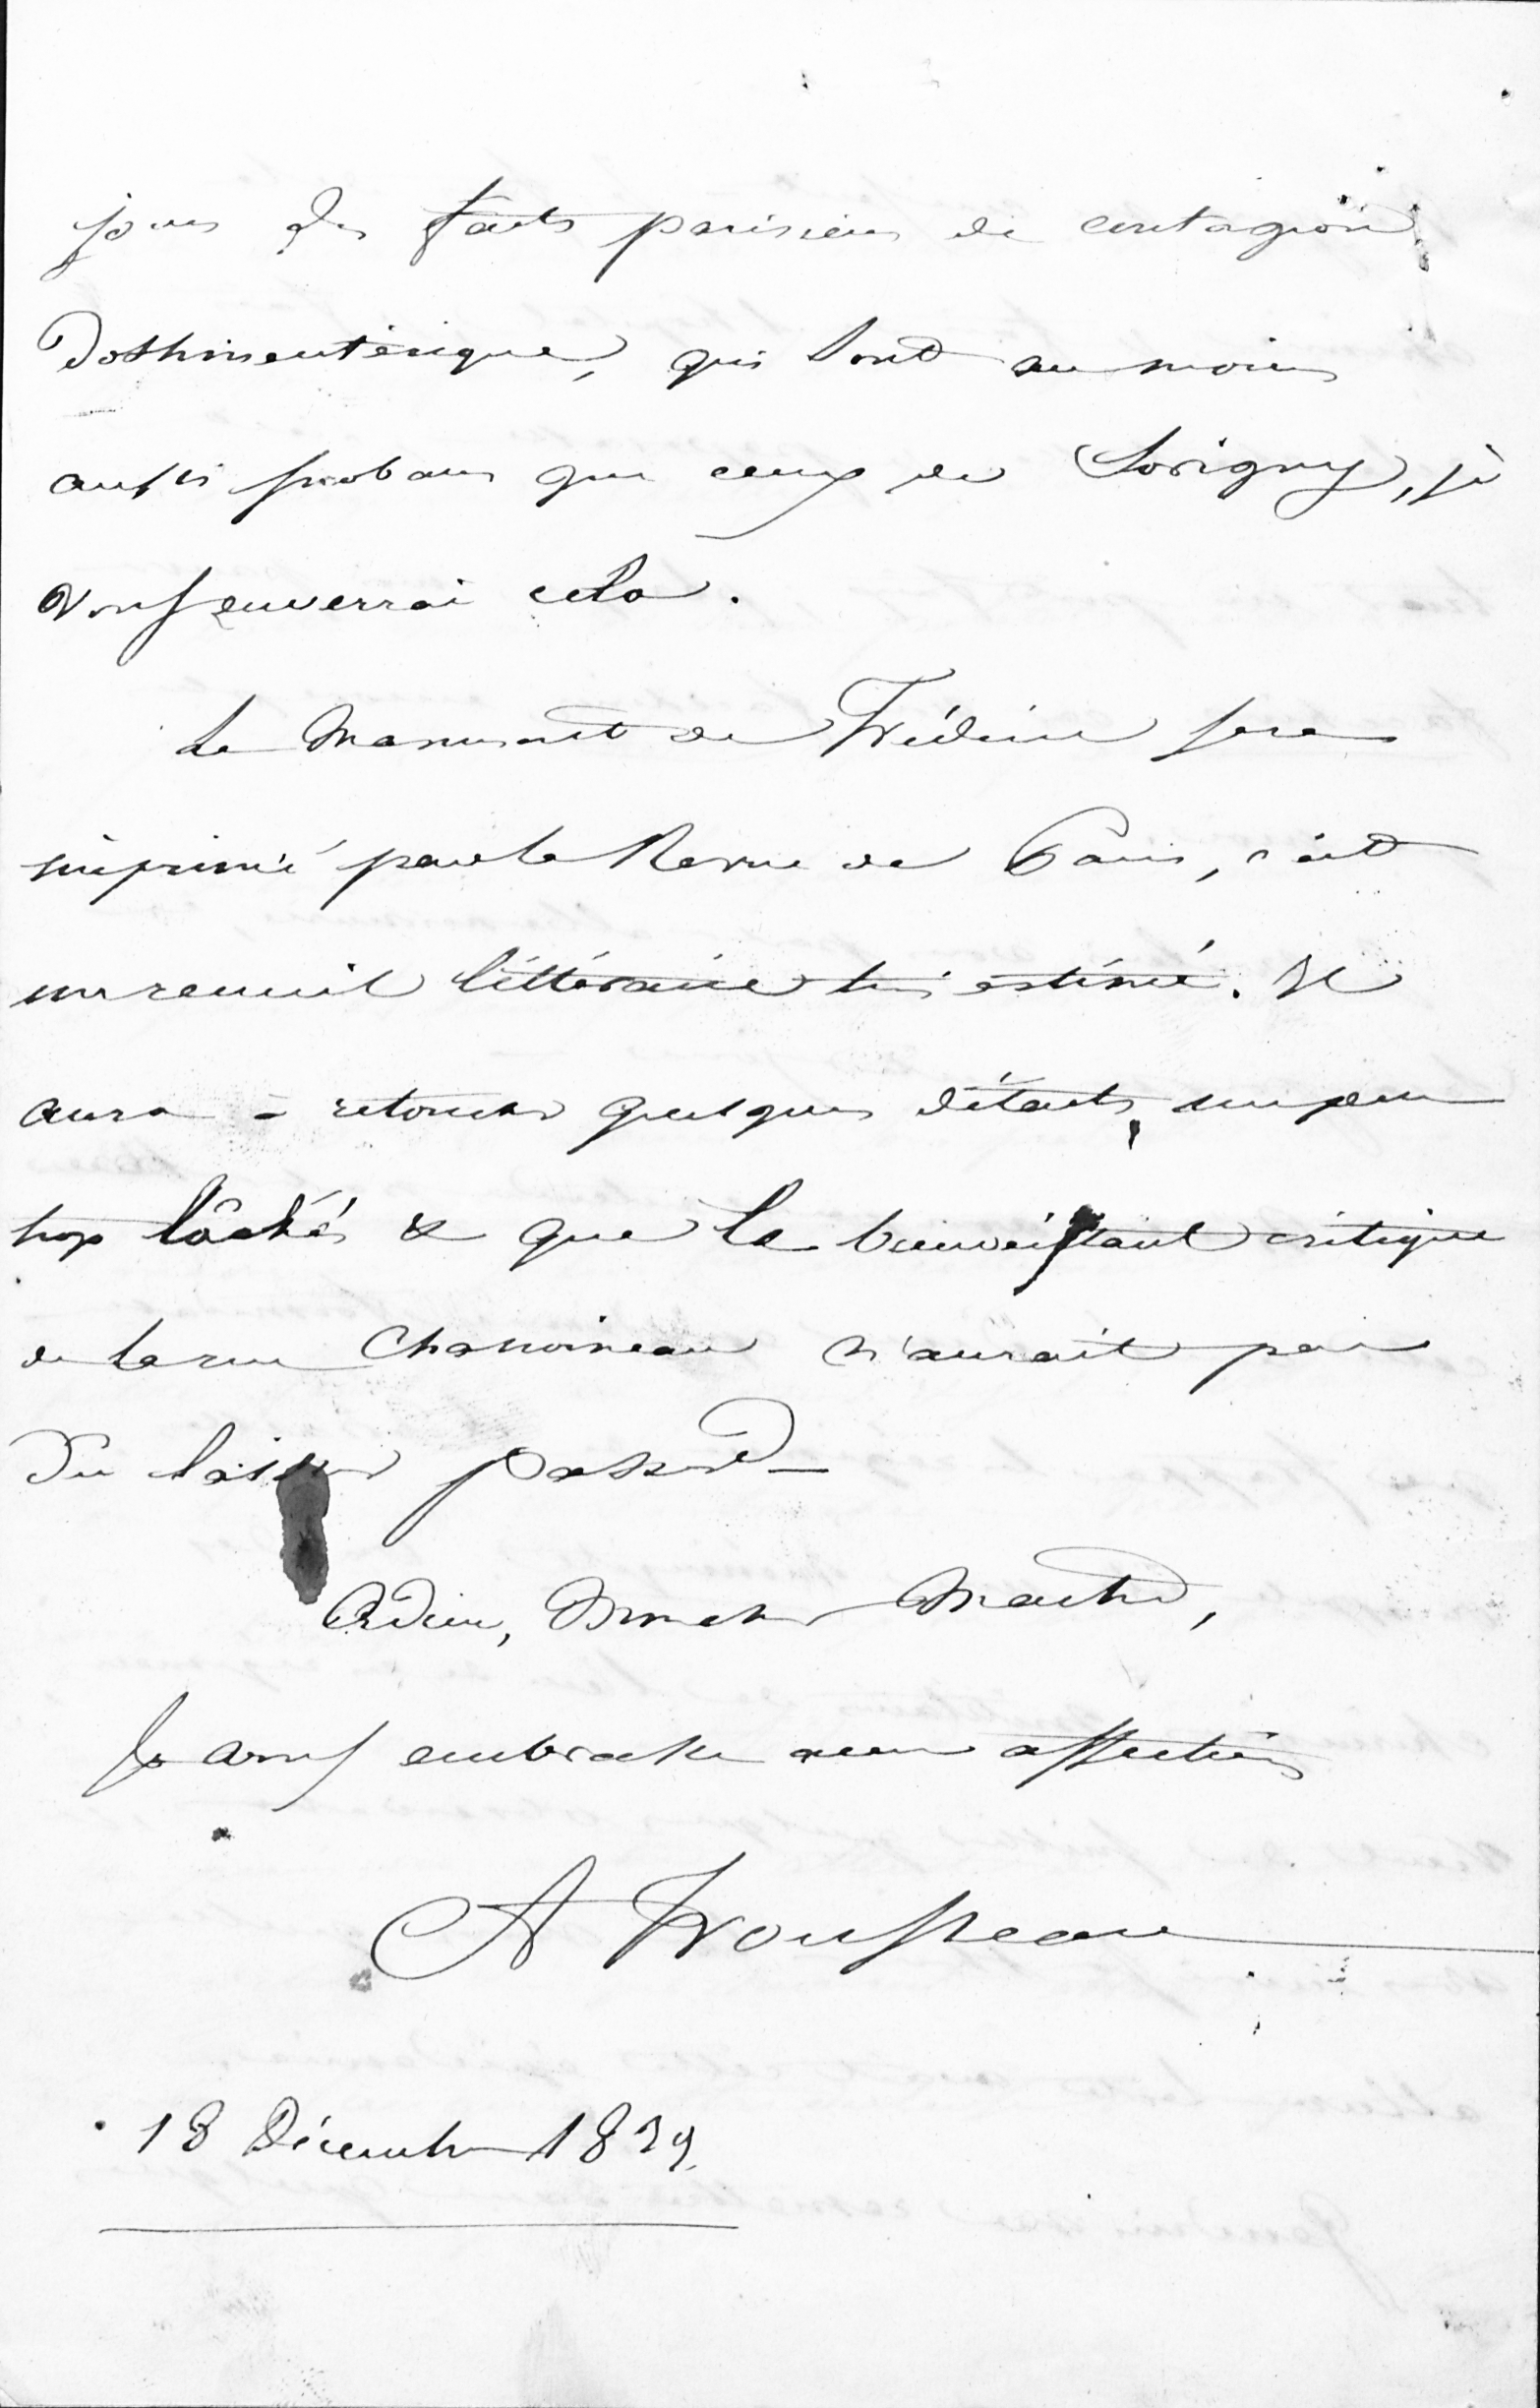 jours des faits parisiens de contagion
Dothinentérique, qui sont au moins
aussi probans que ceux de Sorigny, je
vous enverrai cela.
Le Manuscrit de Frédéric sera
imprimé par la Revue de Paris, c'est
un recueil littéraire très estimé. Il
aura à retoucher quelques détails, un peu
trop lâchés & que la bienveillante critique
de la rue Chanoineau n'aurait pas
du laisser passer —
Adieu, Mon cher Maitre,
Je vous embrasse avec affection
A Trousseau
18 Décembre 1839